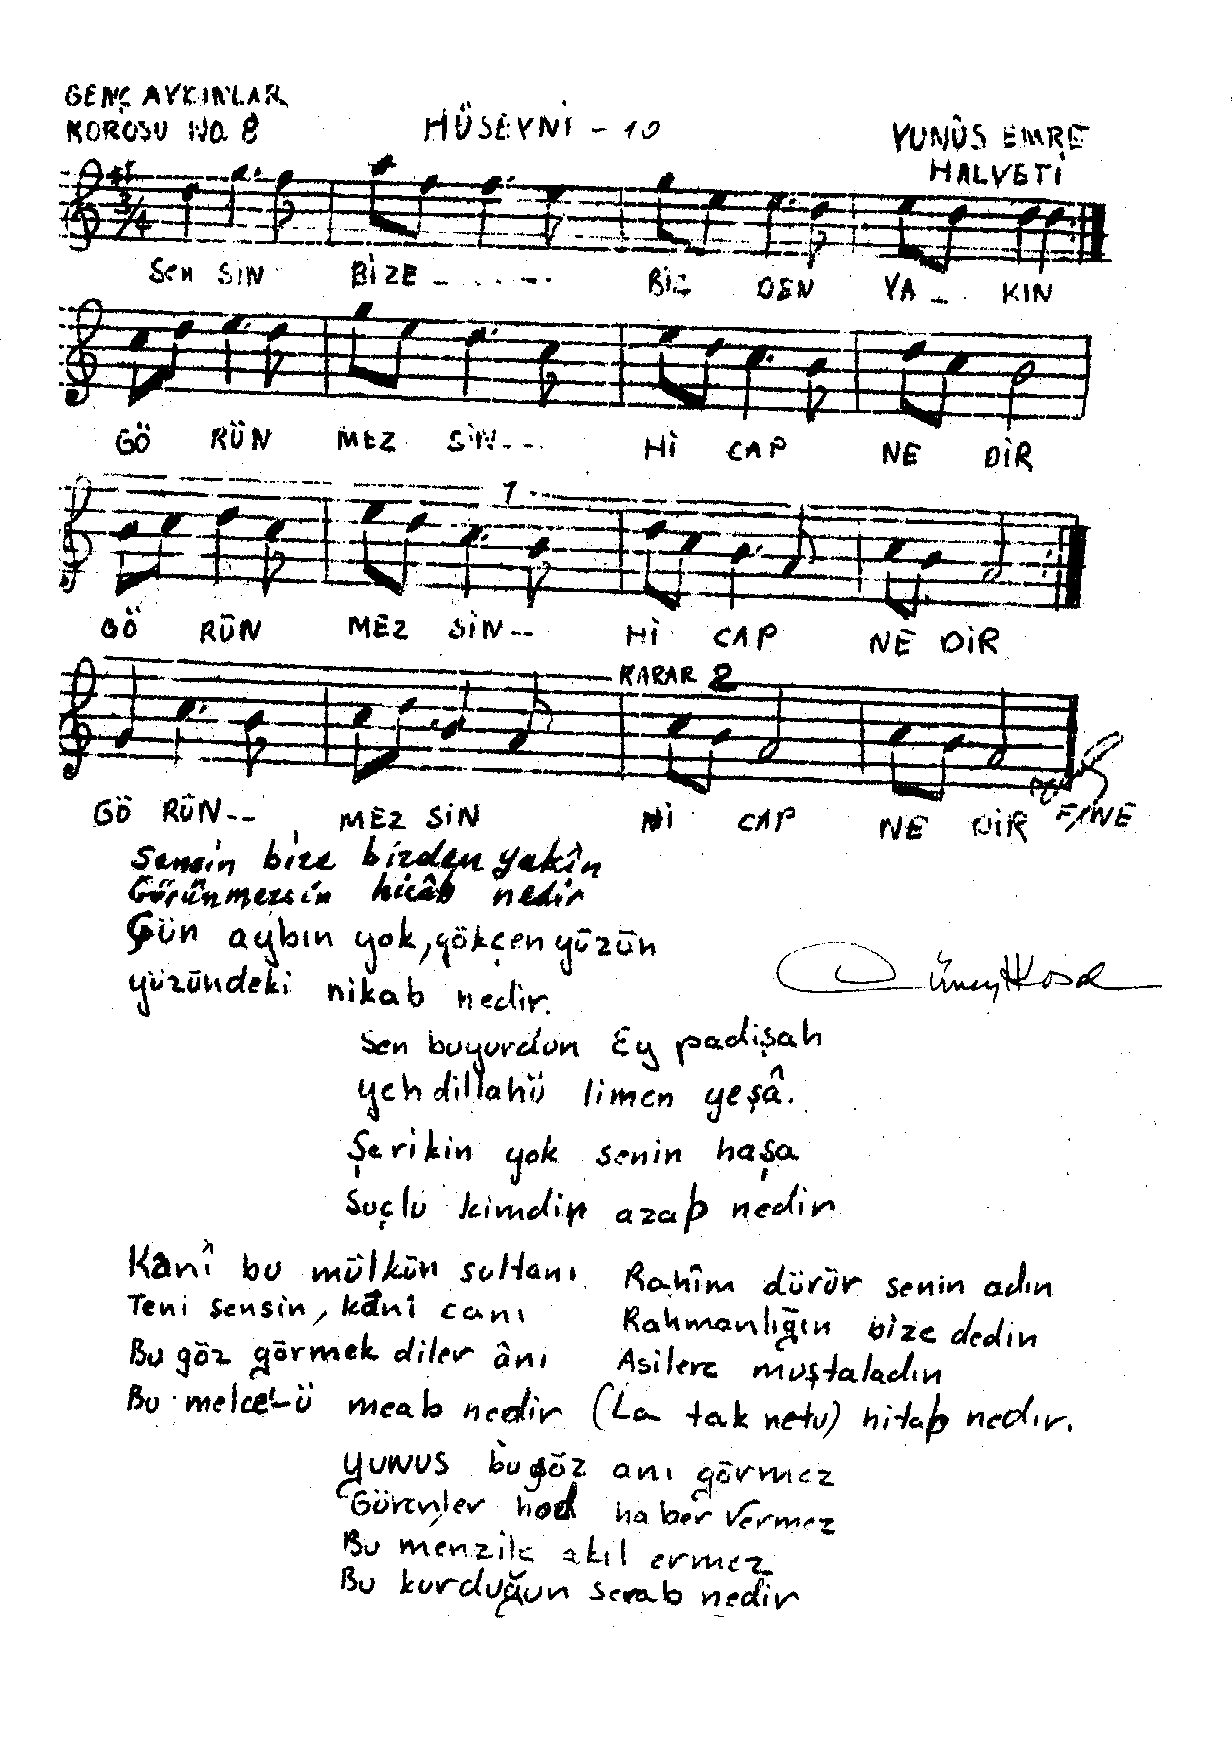 GENÇ AYKINLAR
KOROSU NO. 8
HÜSEYNİ - 10
YUNÛS EMRE
HALVETİ
3/4
SEN SIN BİZE - - - - - BİZ DEN YA - - KIN
GÖ RÜN MEZ SİN - - - Hİ CAP NE DİR
1
GÖ RÜN MEZ SİN -- Hİ CAP NE DİR
KARAR 2
GÖ RÜN -- MEZ SİN Hİ CAP NE DİR
FINE
Sensin bize bizden yakîn
Görünmezsin hicâb nedir
Çün aybın yok, gökçen yüzün
yüzündeki nikab nedir.
Sen buyurdun Ey padişah
yehdillahü limen yeşâ.
Şerikin yok senin haşa
Suçlu kimdir azap nedir
Kanî bu mülkün sultanı
Teni sensin, kânî canı
Bu göz görmek diler ânı
Bu melce-ü meab nedir
Rahîm dürür senin adın
Rahmanlığın bize dedin
Asilere muştaladın
(La tak netu) hitap nedir.
YUNUS bu göz anı görmez
Görenler hod haber vermez
Bu menzile akıl ermez
Bu kurduğun serab nedir